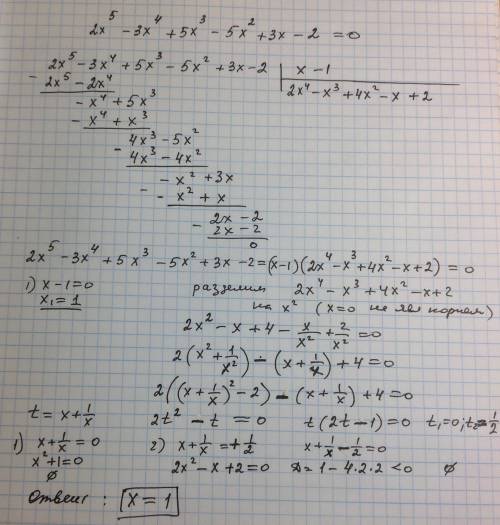 2x⁵ - 3x⁴ + 5x³ - 5x² + 3x - 2 = 0
2x⁵ - 3x⁴ + 5x³ - 5x² + 3x - 2 | x - 1
- 2x⁵ - 2x⁴ | 2x⁴ - x³ + 4x² - x + 2
- x⁴ + 5x³
- - x⁴ + x³
4x³ - 5x²
- 4x³ - 4x²
- x² + 3x
- - x² + x
2x - 2
- 2x - 2
0
2x⁵ - 3x⁴ + 5x³ - 5x² + 3x - 2 = (x-1)(2x⁴ - x³ + 4x² - x + 2) = 0
1) x - 1 = 0 разделим 2x⁴ - x³ + 4x² - x + 2
x₁ = 1 на x² (x=0 не явл корнем)
2x² - x + 4 - x/x² + 2/x² = 0
2(x² + 1/x²) - (x + 1/x) + 4 = 0
2((x + 1/x)² - 2) - (x + 1/x) + 4 = 0
t = x + 1/x 2t² - t = 0 t(2t - 1) = 0 t₁ = 0; t₂ = 1/2
1) x + 1/x = 0 2) x + 1/x = + 1/2 x + 1/x - 1/2 = 0
x² + 1 = 0 2x² - x + 2 = 0 D = 1 - 4·2·2 < 0 ∅
∅
Ответ : x = 1